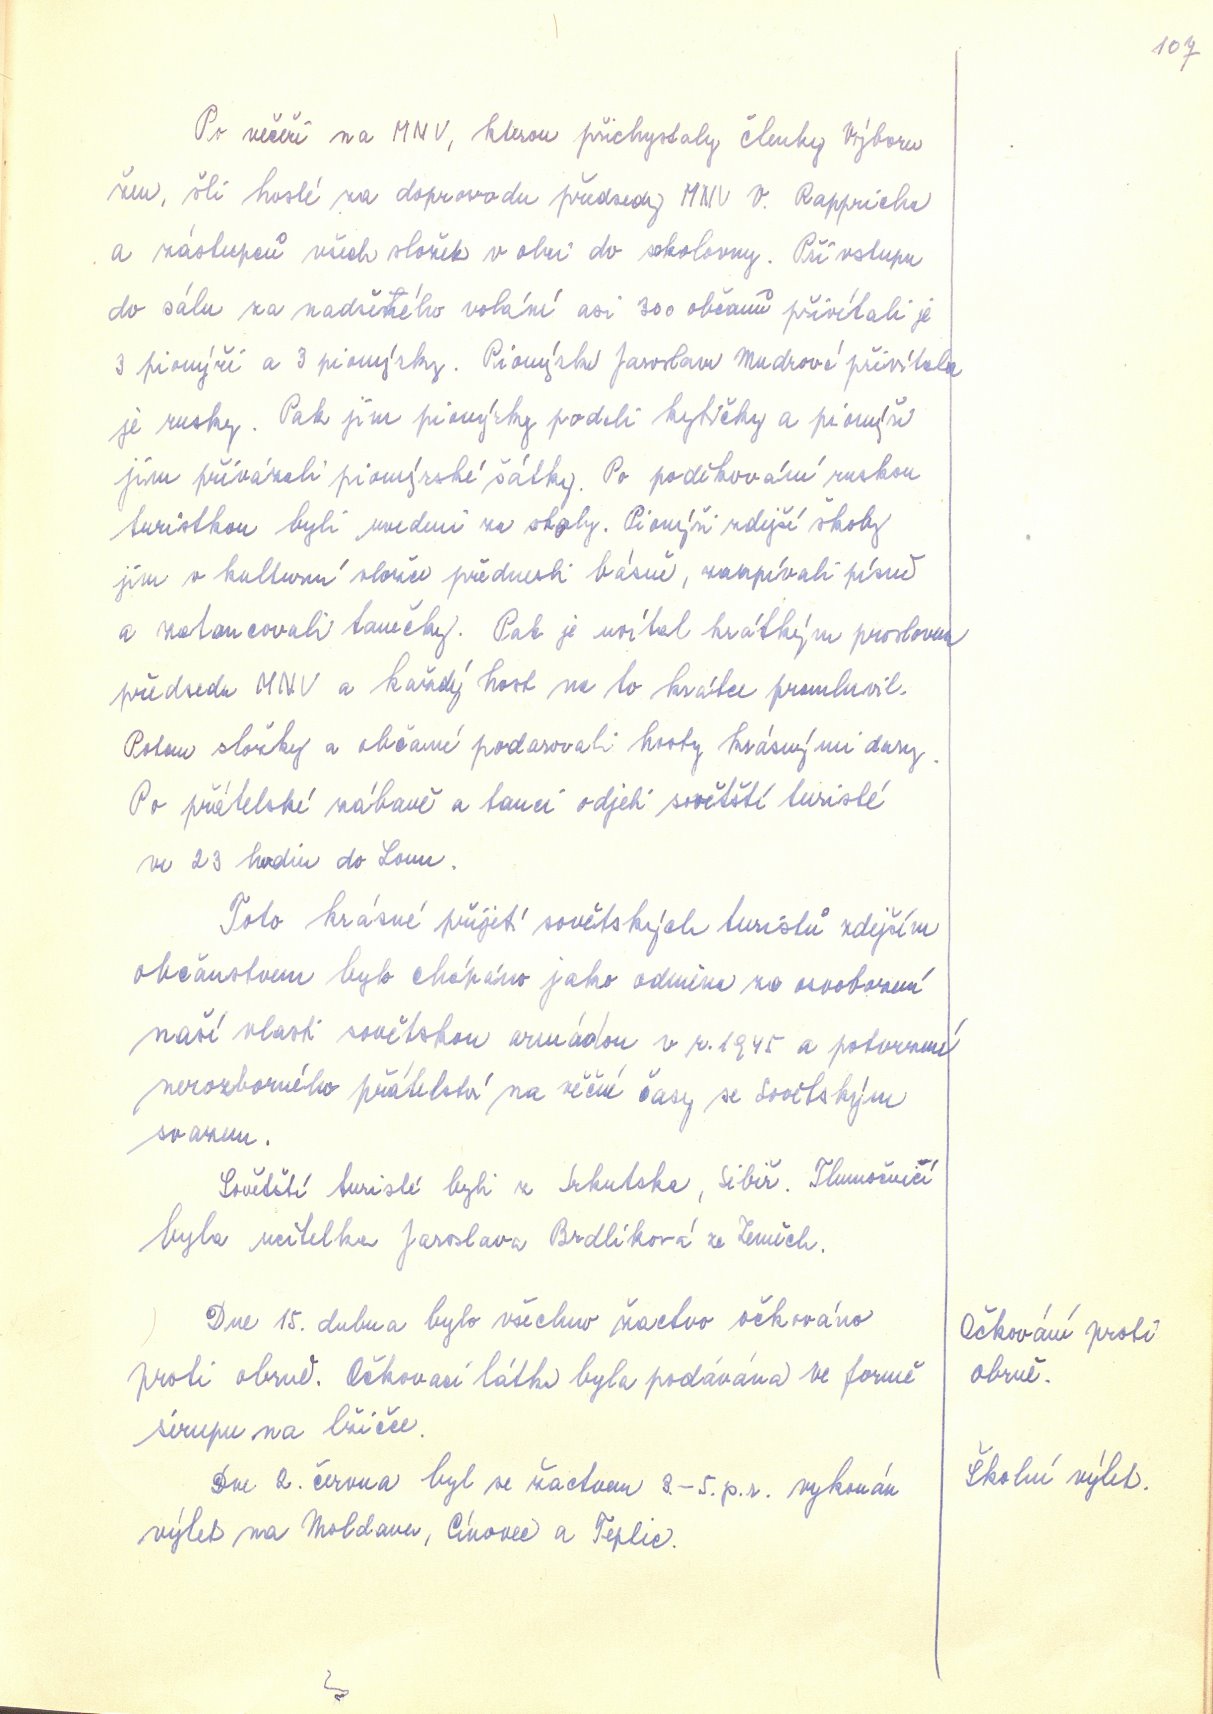 107
Po večeři na MNV, kterou přichystaly členky Výboru
žen, šli hosté za doprovodu předsedy MNV V. Rappricha
a zástupců všech složek v obci do sokolovny. Při vstupu
do sálu za nadšeného volání asi 300 občanů přivítali je
3 pionýři a 3 pionýrky. Pionýrka Jaroslava Mudrová přivítala
je rusky. Pak jim pionýrky podali kytičky a pionýři
jim přivázali pionýrské šátky. Po poděkování ruskou
turistkou byli uvedeni za stoly. Pionýři zdejší školy
jim v kulturní vložce přednesli básně, zazpívali písně
a zatancovali tanečky. Pak je uvítal krátkým proslovem
předseda MNV a každý host na to krátce promluvil.
Potom složky a občané podarovali hosty krásnými dary.
Po přátelské zábavě a tanci odjeli sovětští turisté
ve 23 hodin do Lomu.
Toto krásné přijetí sovětských turistů zdejším
občanstvem bylo chápáno jako odměna za osvobození
naší vlasti sovětskou armádou v r. 1945 a potvrzení
nerozborného přátelství na věčné časy se Sovětským
svazem.
Sovětští turisté byli z Irkutska, Sibiř. Tlumočnicí
byla učitelka Jaroslava Brdlíková ze Zeměch.
Dne 15. dubna bylo všechno žactvo očkováno
Očkování proti
proti obrně. Očkovací látka byla podávána ve formě
obrně.
sirupu na lžičce.
Dne 2. června byl se žactvem 3.–5. p. r. vykonán
Školní výlet.
výlet na Moldavu, Cínovec a Teplic.